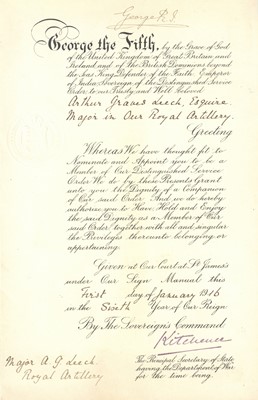 George R.I.
George the Fifth, by the Grace of God
of the United Kingdom of Great Britain and
Ireland and of The British Dominions beyond
the Seas King, Defender of the Faith, Emperor
of India, Sovereign of the Distinguished Service
Order to our Trusty and Well Beloved
Arthur Graves Leech, Esquire
Major in Our Royal Artillery.
Greeting
Whereas We have thought fit to
Nominate and Appoint you to be a
Member of Our Distinguished Service
Order We do by these Presents Grant
unto you the Dignity of a Companion
of Our said Order And we do hereby
authorize you to Have Hold and Enjoy
the said Dignity as a Member of Our
said Order together with all and singular
the Privileges thereunto belonging or
appertaining.
Given at Our Court at St James's
under Our Sign Manual this
First day of January 1916
in the Sixth Year of Our Reign
By The Sovereign's Command
Kitchener
Major A. G. Leech
Royal Artillery
The Principal Secretary of State
having the Department of War
for the time being.